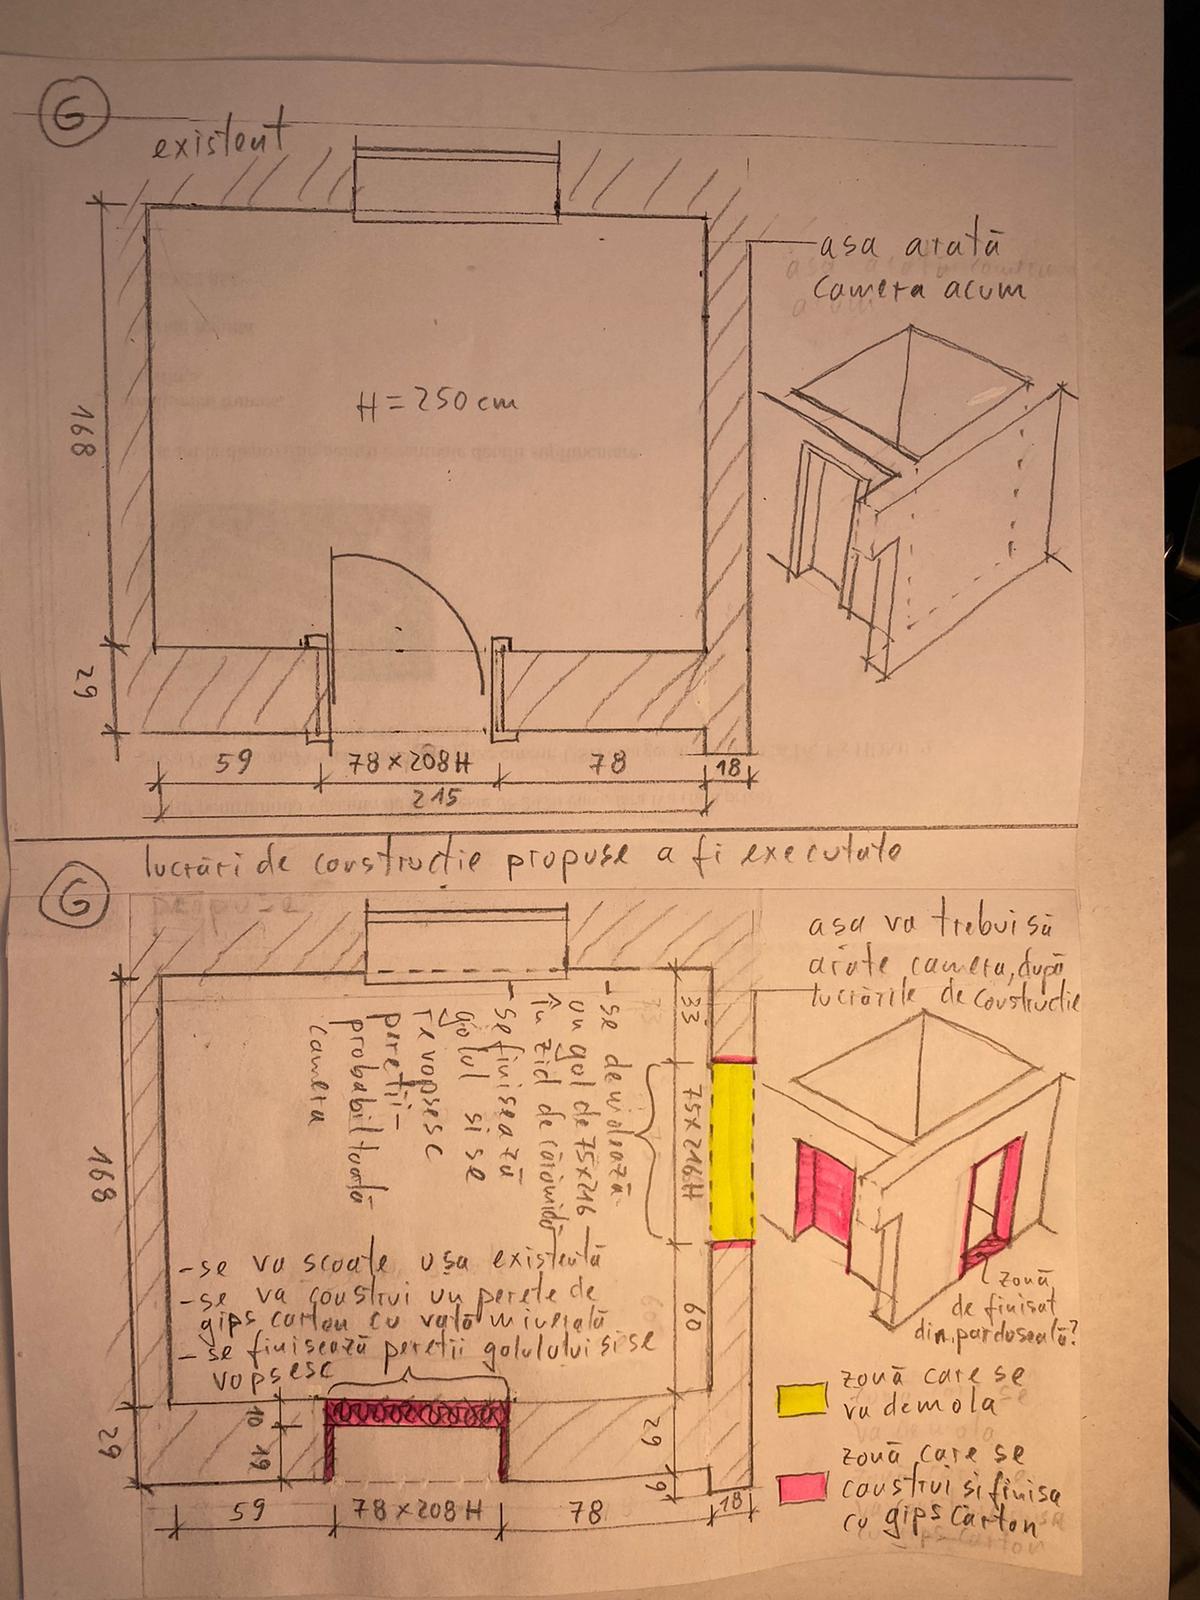 G
existent
asa arată
camera acum
H = 250 cm
168
29
59
78 × 208 H
78
18
215
lucrări de constructie propuse a fi executate
G
propuse
asa va trebui să
arate camera, după
lucrările de constructie
33
75 × 216 H
60
29
9
- se demolează
un gol de 75×216 -
în zid de cărămidă
- se finisează
golul si se
revopsesc
peretii -
probabil toată
camera
168
29
- se va scoate usa existentă
- se va construi un perete de
gips carton cu vată minerală
- se finisează peretii golului si se
vopsesc
10
19
59
78 × 208 H
78
18
zonă
de finisat
din pardoseală?
zonă care se
va demola
zonă care se
construi si finisa
cu gips carton